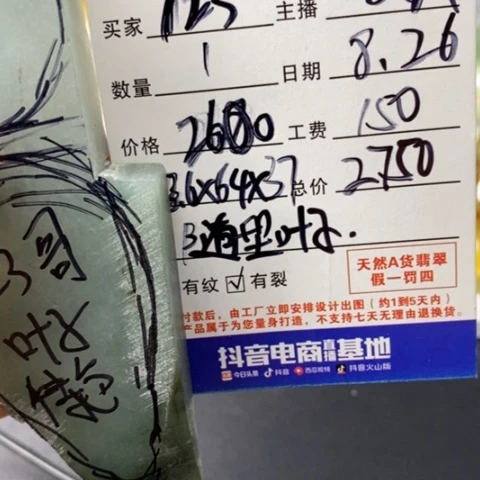 买家 123 主播
数量 1 日期 8.26
价格 2600 工费 150
3.6×64×37 总价 2750
造型叶子.
有纹 ☑ 有裂
天然A货翡翠
假一罚四
付款后，由工厂立即安排设计出图（约1到5天内）
产品属于为您量身打造，不支持七天无理由退换货。
抖音电商直播基地
今日头条 抖音 西瓜视频 抖音火山版
哥
叶子